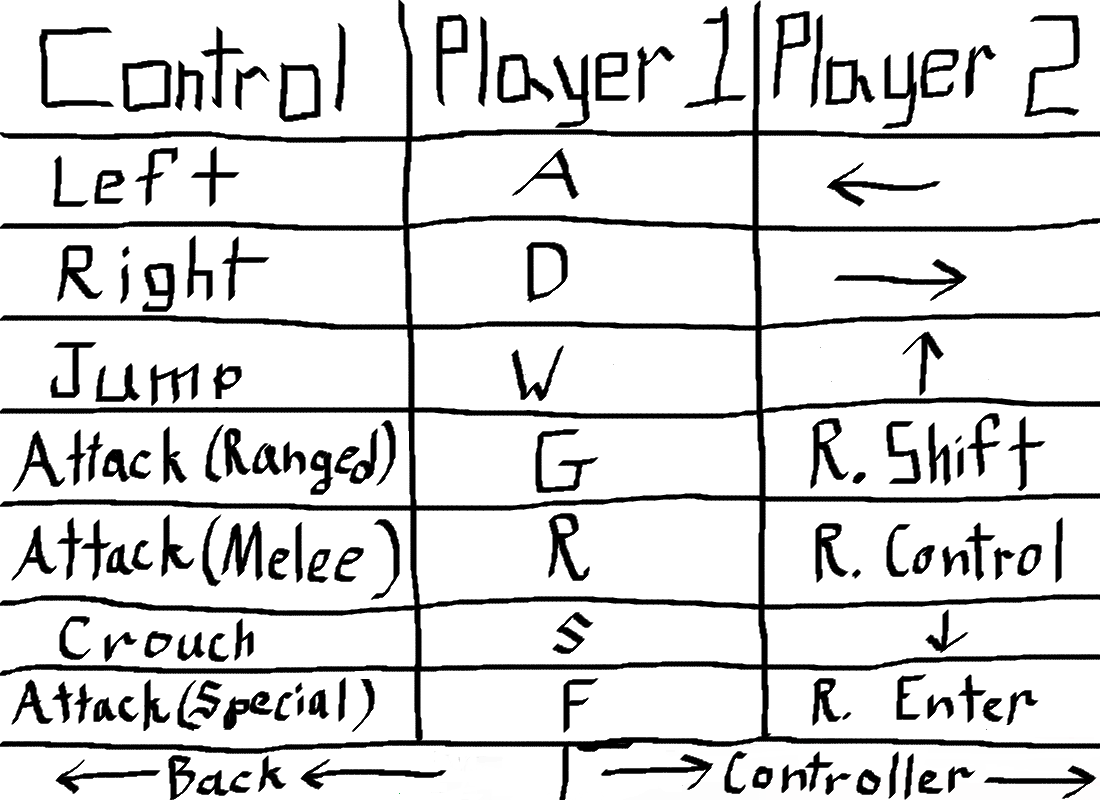 Control Player 1 Player 2
Left A ←
Right D →
Jump W ↑
Attack (Ranged) G R. Shift
Attack (Melee) R R. Control
Crouch S ↓
Attack (Special) F R. Enter
← Back ← | → Controller →